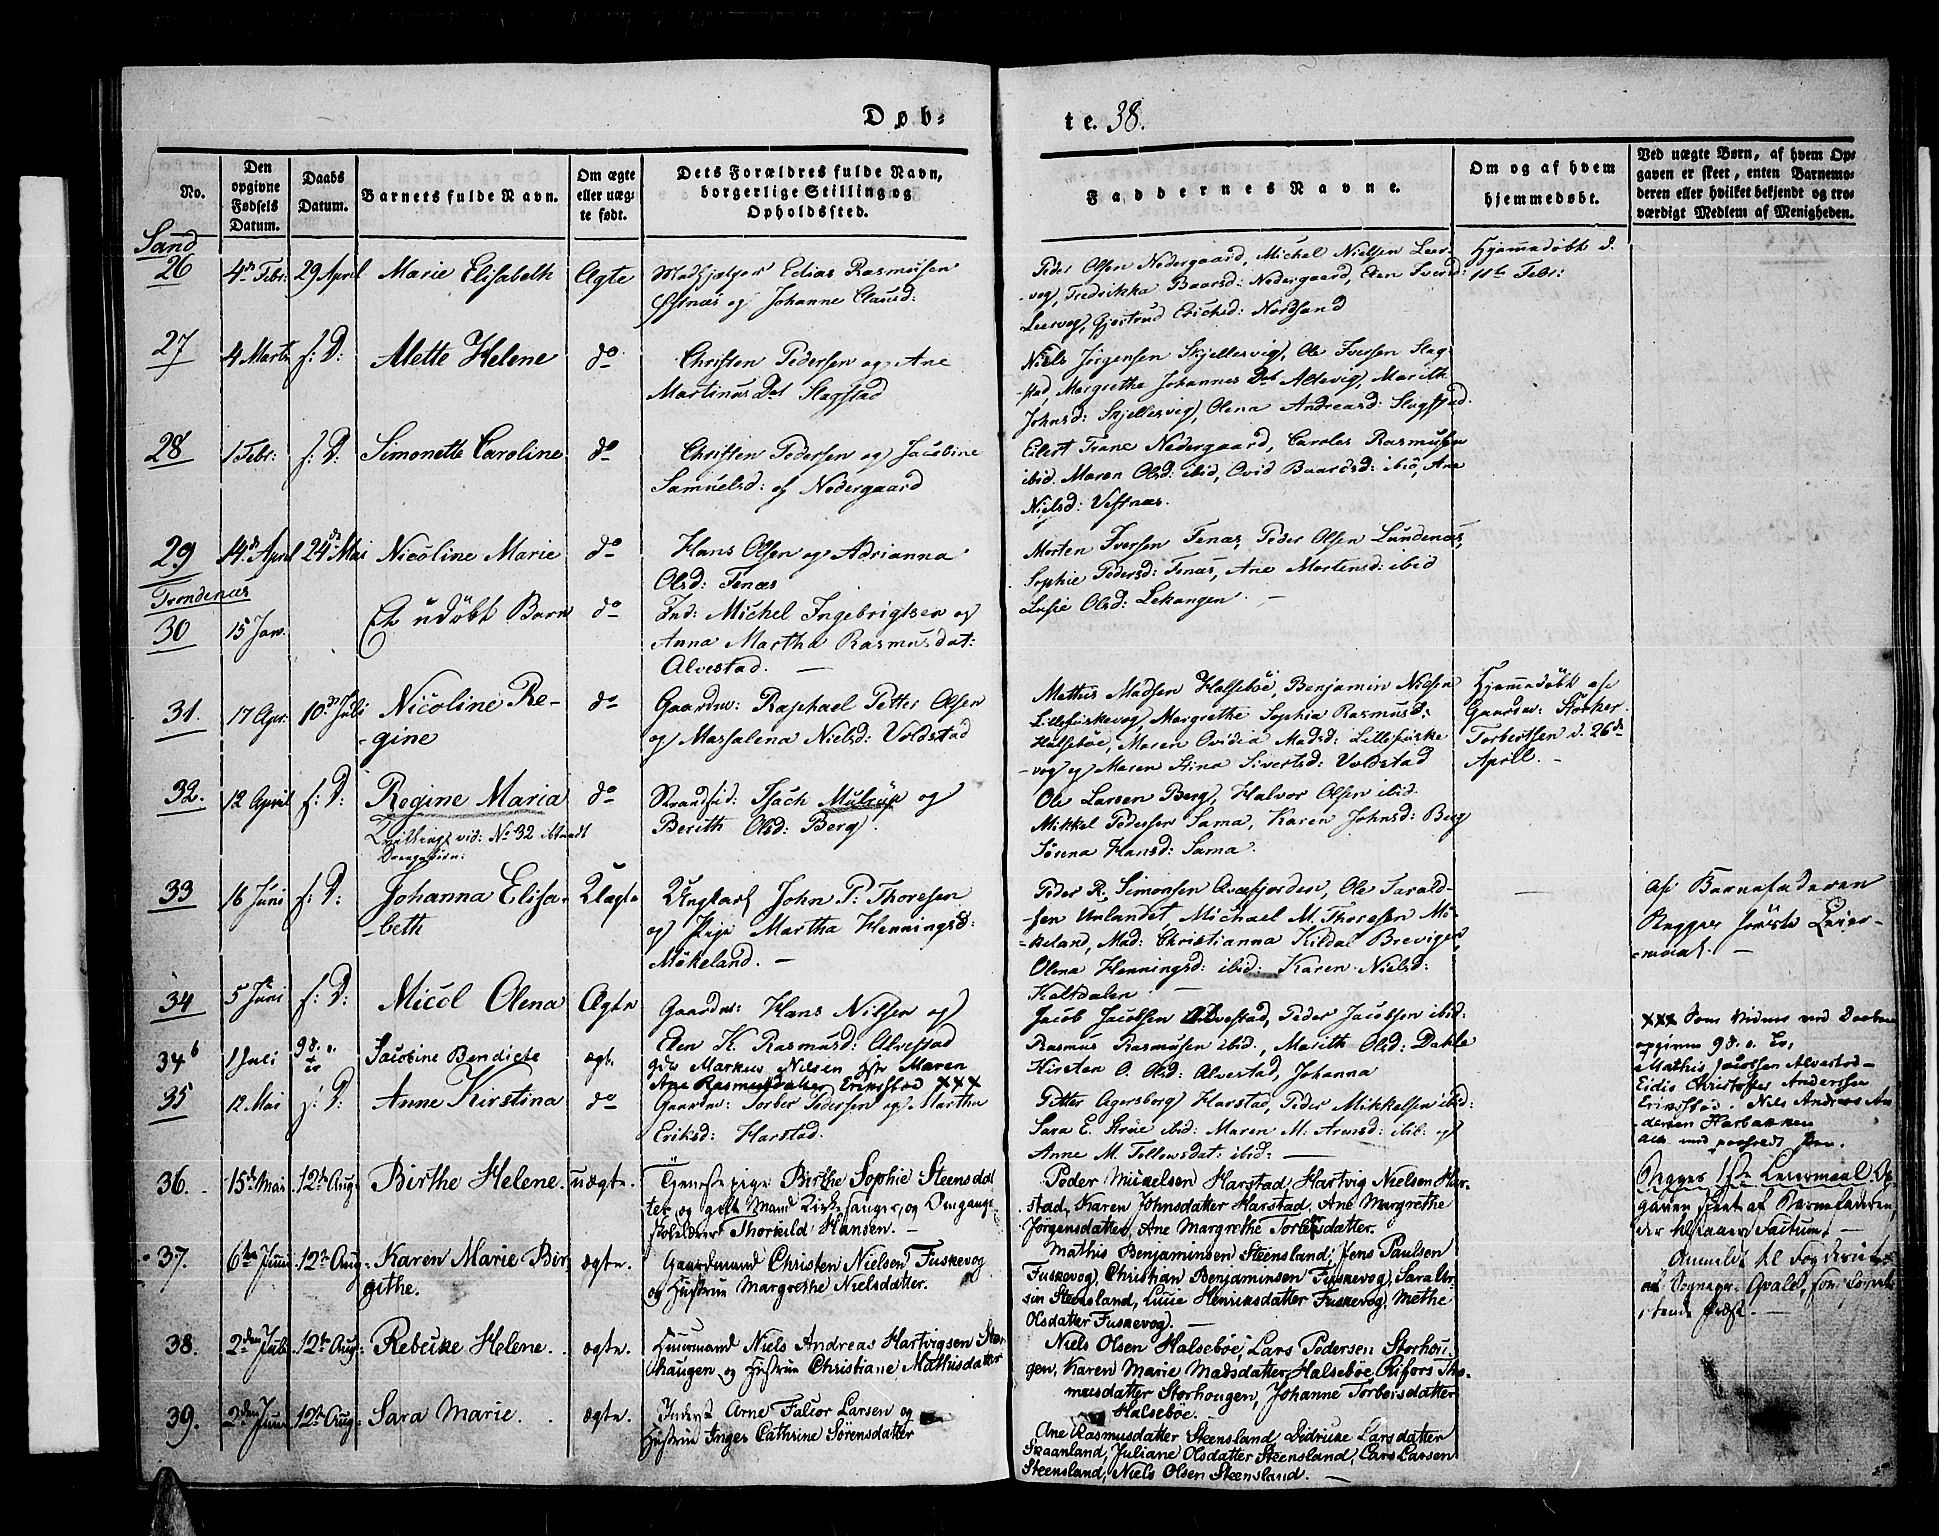 Døb-
te. 38.
No.
Den opgivne Fødsels Datum.
Daabs Datum.
Barnets fulde Navn.
Om ægte eller uægte født.
Dets Forældres fulde Navn, borgerlige Stilling og Opholdssted.
Faddernes Navne.
Om og af hvem hjemmedøbt.
Ved uægte Børn, af hvem Opgaven er skeet, enten Barnemoderen eller hvilket bekjendt og troværdigt Medlem af Menigheden.
Sand
26
4de Febr:
29 April
Marie Elisabeth
Ægte
Edias Rasmussen
Østnæs og Johanne Clausd:
Peder Olsen Nedergaard, Michel Nielsen Leer-
-vog, Fredrikka Baarsd: Nedergaard, Elen Iversd:
Leervog, Gjertrud Erichsd: Nordsand
Hjemmedøbt d.
11te Febr:
27
4 Marts
s: D:
Mette Helene
do
Christen Pedersen og Ane
Martinus Dat Slagstad
Niels Jørgensen Skjellesvig, Ole Iversen Slag-
stad, Margrethe Johannes Dat Altevig, Marith
Johnsd: Skjellesvig, Olena Andreasd: Slagstad.
28
1 Febr:
s: D:
Simonette Caroline
do
Christen Pedersen og Jacobine
Samuelsd: af Nedergaard
Eilert Trane Nedergaard, Caroles Rasmussen
ibid. Maren Olsd: ibid, Ovid Baardsd: ibid, Ane
Nielsd: Vestnæs.
29
14de April
24de Mai
Nicoline Marie
do
Hans Olsen og Adrianna
Olsd: Fenæs
Morten Iversen Fenæs, Peder Olsen Lundenæs,
Sophie Pedersd: Fenæs, Ane Mortensd: ibid
Lusie Olsd: Lekangen. —
Trondenæs
30
15 Jan.
Et udøbt Barn
do
Ind: Michel Ingebrigtsen og
Anna Martha Rasmusdat:
Alvestad. —
31.
17 Apr.
10de Juli
Nicoline Re-
-gine
do
Gaardm: Raphael Petter Olsen
og Massalena Nielsd: Voldstad
Mathis Madsen Halsebøe, Benjamin Nielsen
Lillefuskevog, Margrethe Sophia Rasmusd:
Halsebøe, Maren Ovidia Madsd: Lillefuske
-vog og Maren Stina Sivertsd: Voldstad
Hjemmedøbt af
Gaardm: Storker
Torbertsen d. 26de
April. —
32.
12 April
s: D:
Regine Maria
do
Strandsid: Isach Mulrup og
Berith Olsd: Berg.
Ole Larsen Berg, Halvor Olsen ibid.
Mikkel Pedersen Sama, Karen Johnsd: Berg
Sørena Hansd: Sama.
vid: No 32
33
16 Juni
s: D:
Johanna Elisa-
-beth
Uægte
Ungkarl John P. Thoresen
og Pige Martha Henningsd:
Møkeland. —
Peder R. Simonsen Qvæfjorden, Ole Sarald-
sen Unlandet, Michael M. Thoresen Mø-
-keland, Mad: Christianna Kildal Brevigen,
Olena Henningsd: ibid: Karen Nielsd:
Kaltdalen —
af Barnefaderen
Begges første Leier-
-maal. —
34
5 Juni
s: D:
Micol Olena
Ægte
Gaardm: Hans Nilsen og
Elen K. Rasmusd: Alvestad
Jacob Jacobsen Alvestad, Peder Jacobsen ibid:
Rasmus Rasmusen ibid, Marith Olsd: Dahle
Kirsten O. Olsd: Alvestad, Johanna
34b
1 Juli
Jacobine Bendicte
ægt.
Markus Nilsen Maren
Ane Rasmusdatter Erikstad XXX
XXX Som Vidner ved Daaben
opgives
Mathis Jacobsen Alvestad
Edis Christoffer Andersen
Erikstad. Niels Andreas An-
dersen Harbakken
35
12 Mai
s: D:
Anne Kirstina
do
Gaardm: Torber Pedersen og Martha
Eriksd: Harstad.
Petter Agersborg Harstad, Peder Mikkelsen ibid:
Sara E. Strøe ibid: Maren M. Arensd: ibid: og
Anne M. Tollewsdat: ibid: —
36.
15de Mai
12te Aug:
Birthe Helene.
uægte.
Tjenestepige Birthe Sophie Steensdat
ter og gift Mand Kirkesanger og Omgangs-
skoleholder Thorkild Hansen. —
Peder Mickelsen Harstad, Hartvig Nielsen Har-
stad, Karen Johnsdatter Harstad, Ane Margrethe
Jørgensdatter, Ane Margrethe Torbersdatter.
Begges 1ste Leiermaal. Op-
gaven skeet af Barnefaderen,
37.
6te Juni
12te Aug:
Karen Marie Bir-
githe.
ægte.
Gaardmand Christen Nielsen Fuskevog
og Hustrue Margrethe Nielsdatter.
Mathis Benjaminsen Steensland, Jens Paulsen
Fuskevog, Christian Benjaminsen Fuskevog, Sara Ur-
sin Steensland, Lucie Henriksdatter Fuskevog, Methe
Olsdatter Fuskevog. —
38.
2den Juli
12te Aug:
Rebekke Helene.
ægte.
Huusmand Niels Andreas Hartvigsen Stor
haugen og Hustrue Christiane Mathisdatter
Niels Olsen Halsebøe, Lars Pedersen Storhou-
gen, Karen Marie Madsdatter Halsebøe, Rifors Tho-
masdatter Storhougen, Johanne Torbersdatter
Halsebøe.
39.
2den Juni
12te Aug:
Sara Marie.
ægte.
Inderst Arne Falcor Larsen og
Hustrue Inger Cathrine Sørensdatter
Ane Rasmusdatter Steensland, Didrikke Larsdatter
Skaanland, Juliane Olsdatter Steensland, Lars Larsen
Steensland, Niels Olsen Steensland. —